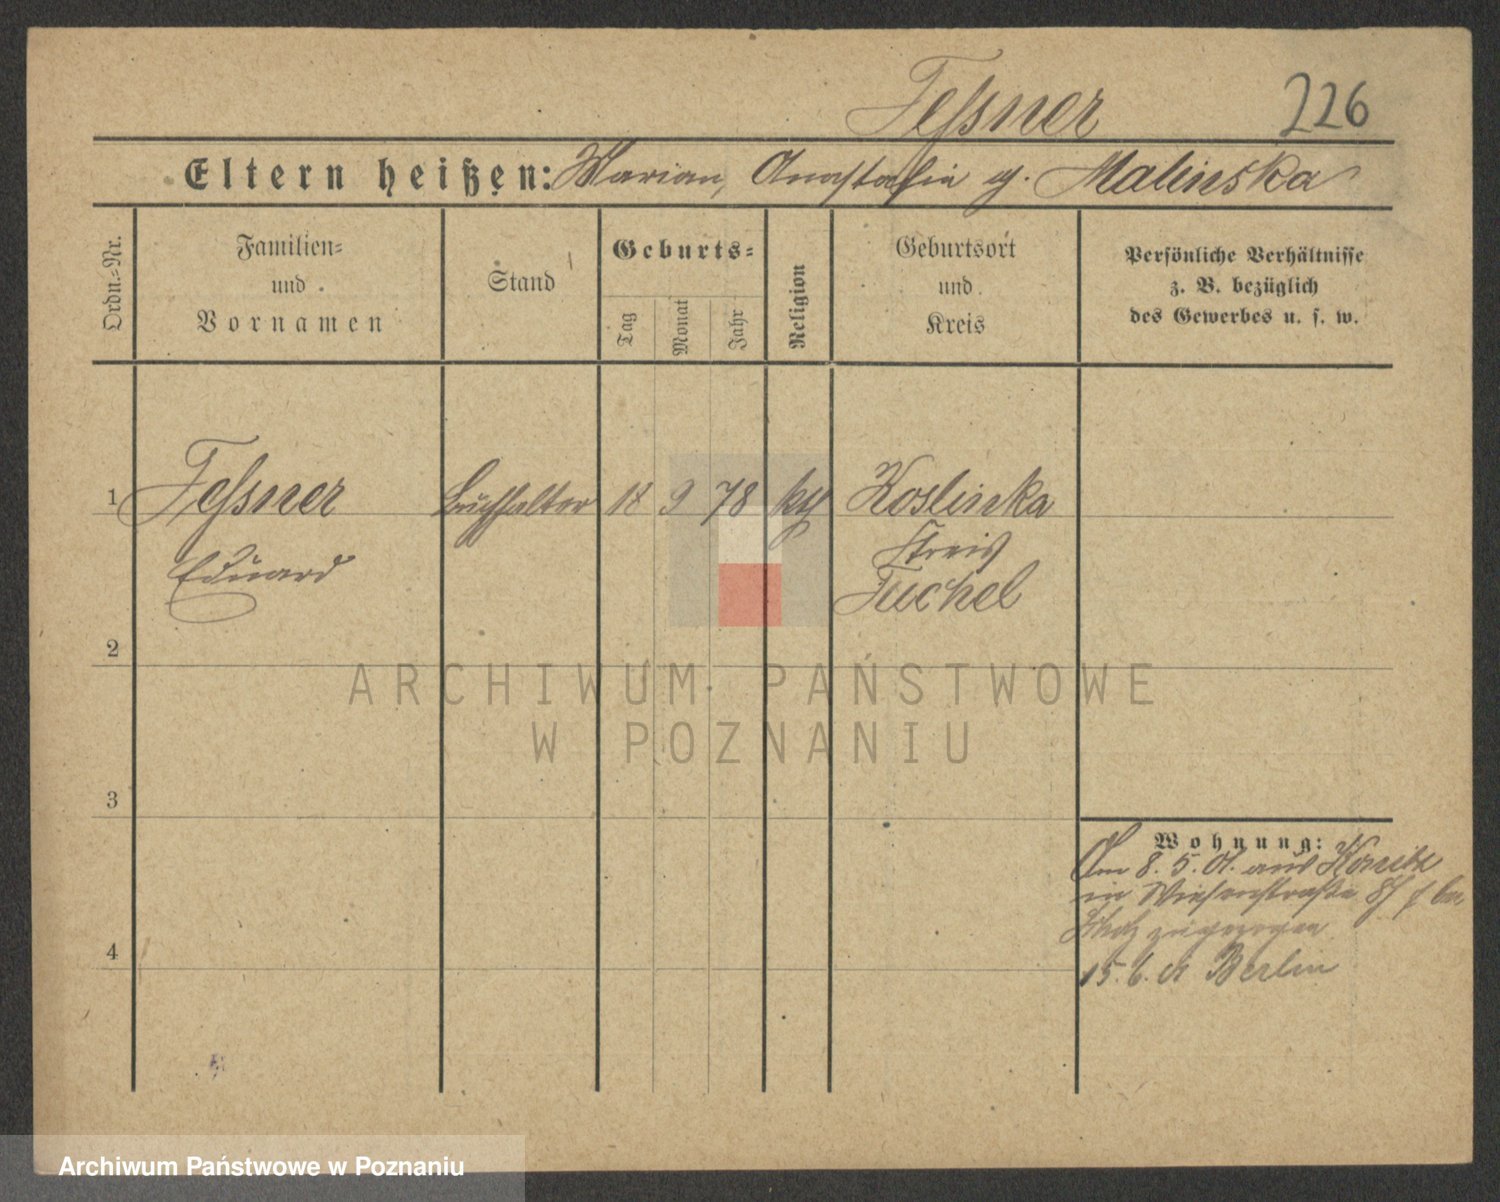 Teßner 226
Eltern heißen: Marian, Anastasia g. Malinska
Ordn.-Nr.
Familien-
und
Vornamen
Stand
Geburts-
Tag
Monat
Jahr
Religion
Geburtsort
und
Kreis
Persönliche Verhältnisse
z. B. bezüglich
des Gewerbes u. s. w.
1 Teßner Buchhalter 18 9 78 kth Koslinka
Eduard Kreis
Tuchel
2
ARCHIWUM PAŃSTWOWE
W POZNANIU
3
Wohnung:
Am 8. 5. 01. aus Konitz
in Wiesenstraße 8 bei
zugezogen
4
15. 6. 01 Berlin
Archiwum Państwowe w Poznaniu